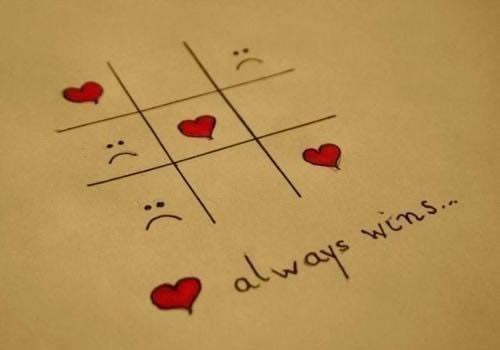 always wins...